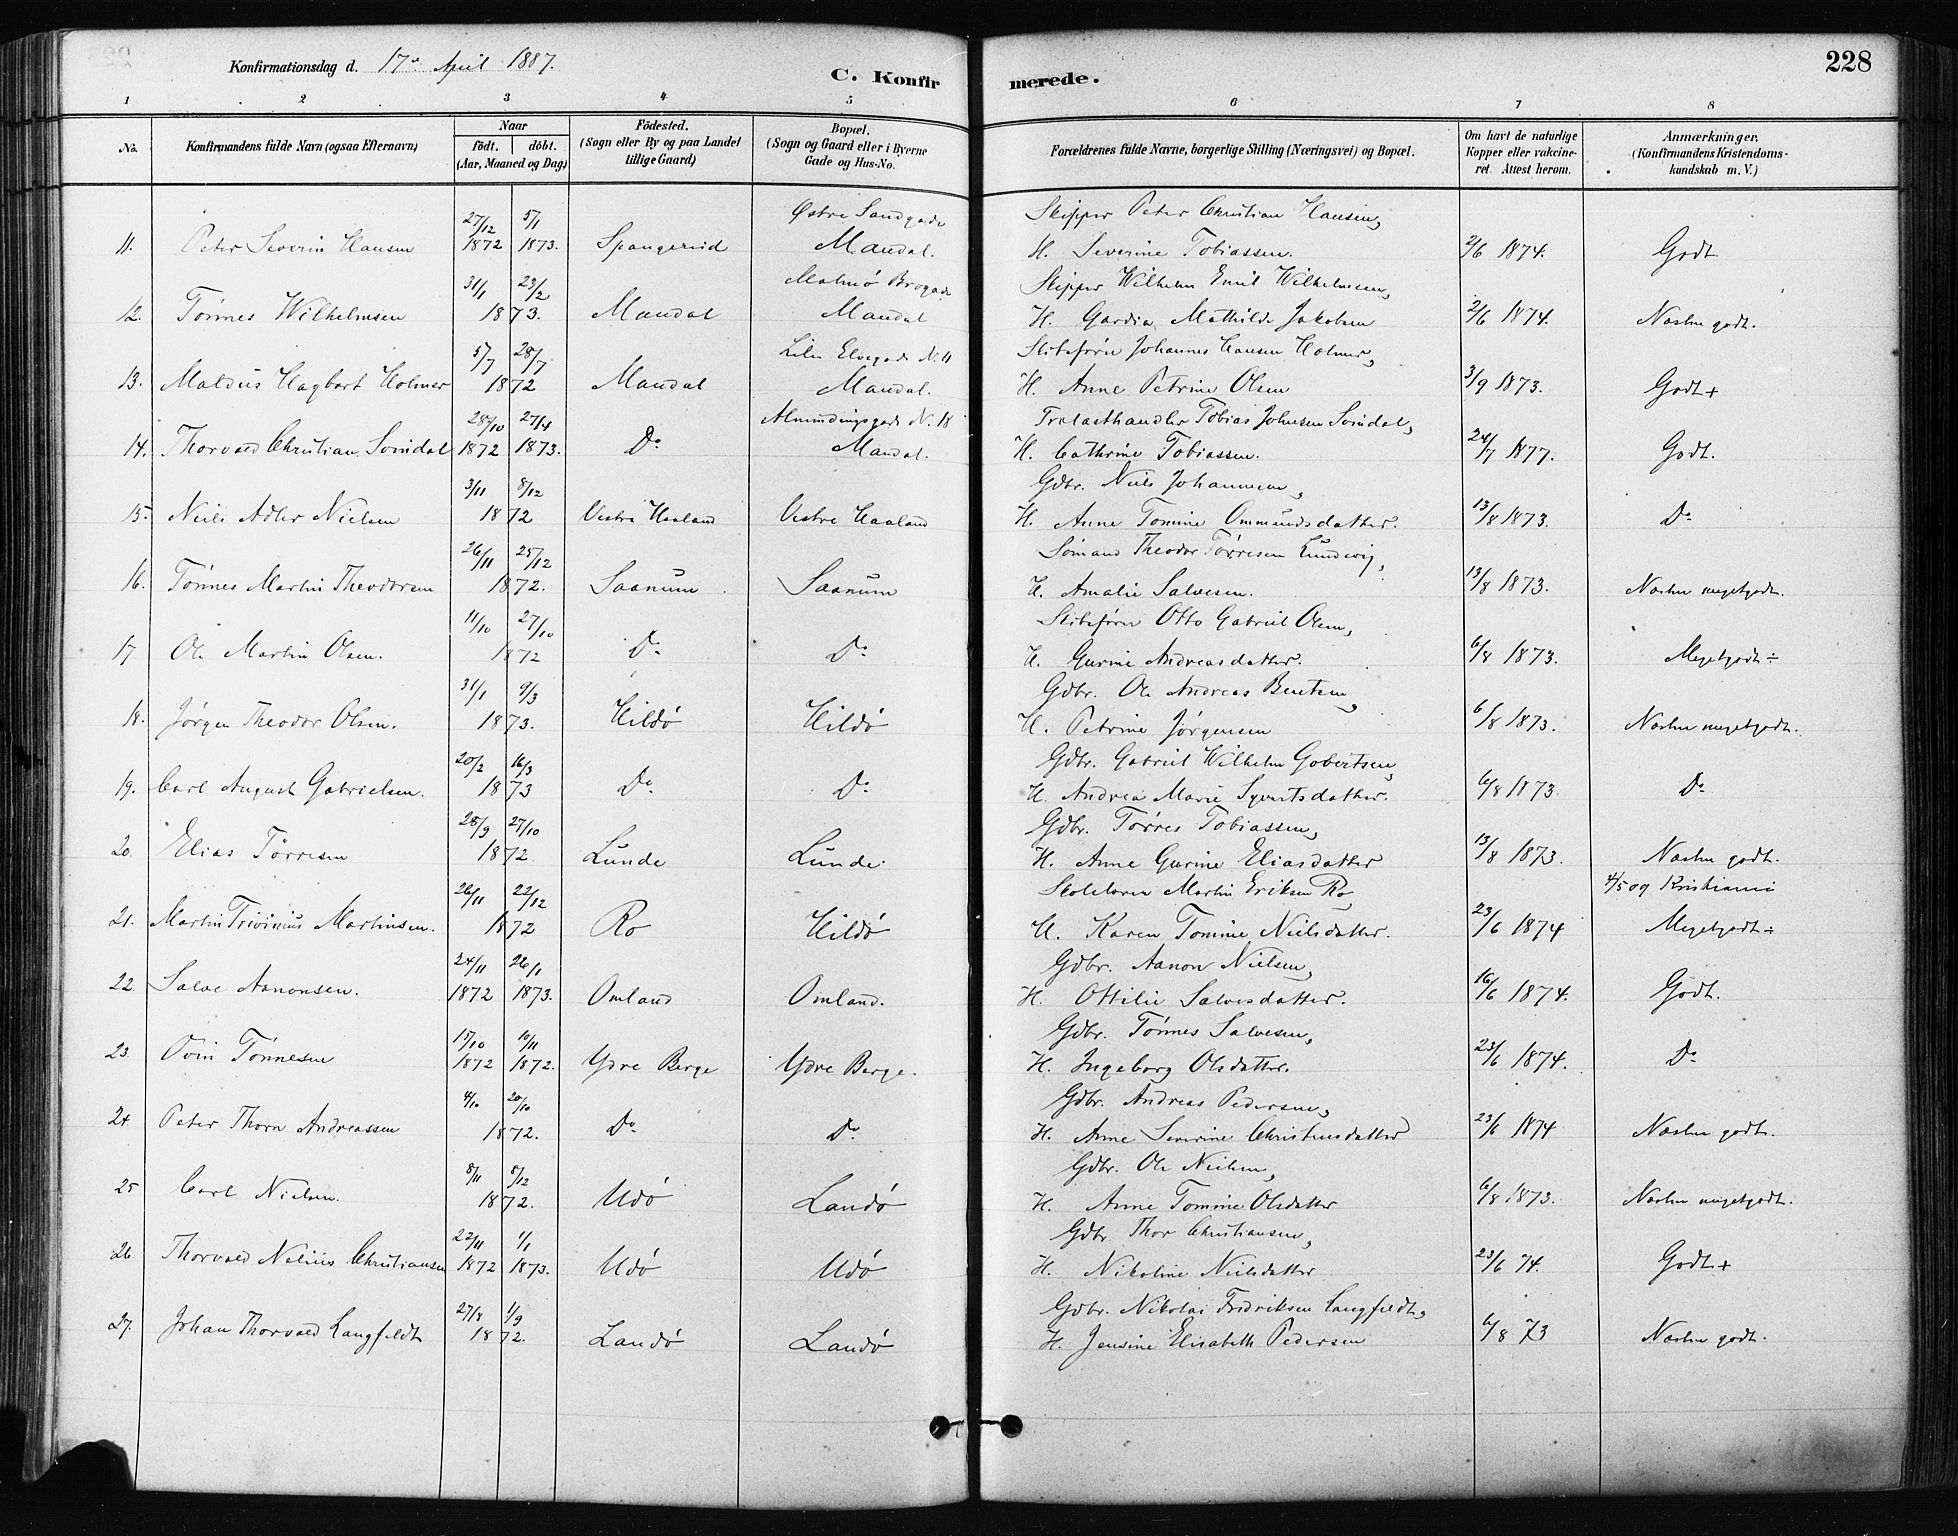 Konfirmationsdag d. 17de April 1887.
C. Konfir merede.
228
1 2 3 4 5 6 7 8
No. Konfirmandens fulde Navn (ogsaa Efternavn) Naar födt. döbt. (Aar, Maaned og Dag) Födested. (Sogn eller By og paa Landet tillige Gaard) Bopæl. (Sogn og Gaard eller i Byerne Gade og Hus-No. Forældrenes fulde Navne, borgerlige Stilling (Næringsvei) og Bopæl. Om havt de naturlige Kopper eller vakcineret. Attest herom. Anmærkninger, (Konfirmandens Kristendomskundskab m. V.)
27/12 5/1 Østre Sandgade Skipper Peter Christian Hansen,
11. Peter Severin Hansen 1872 1873. Spangereid Mandal. H. Severine Tobiassen. 2/6 1874. Godt.
31/1 23/2 Malmø Brogade Skipper Wilhelm Emil Wilhelmsen,
12. Tönnes Wilhelmsen 1873. Mandal Mandal H. Gardia Mathilde Jakobsen 2/6 1874. Næsten godt.
5/7 28/7 Lille Elvegade N. 11 Skibsfører Johannes Hansen Holmer,
13. Maldus Hagbart Holmer 1872 Mandal Mandal. H. Anne Petrine Olsen 3/9 1873. Godt +
28/10 27/4 Almindingsgade N. 18 Trælasthandler Tobias Johnsen Svindal,
14. Thorvald Christian Svindal 1872 1873. Do Mandal. H. Cathrine Tobiassen. 24/7 1877. Godt.
3/11 8/12 Gdbr. Niels Johannesen,
15. Niels Adler Nielsen 1872 Vestre Haaland Vestre Haaland H. Anne Tomine Ommundsdatter. 13/8 1873. Do
26/11 25/12 Sømand Theodor Tørresen Lundevig,
16. Tönnes Martin Theodorsen 1872. Saanum Saanum H. Amalie Salvesen. 13/8 1873. Næsten megetgodt.
11/10 27/10 Skibsfører Otto Gabriel Olsen,
17 Ole Martin Olsen. 1872 Do Do H. Gurine Andreasdatter. 6/8 1873. Megetgodt ÷
31/1 9/3 Gdbr. Ole Andreas Bentsen,
18. Jørgen Theodor Olsen. 1873. Hildö Hildö H. Petrine Jørgensen 6/8 1873. Næsten megetgodt.
20/2 16/3 Gdbr. Gabriel Wilhelm Gobertsen,
19. Carl August Gabrielsen. 1873 Do Do H. Andrea Marie Syvertsdatter. 6/8 1873. Do
28/9 27/10 Gdbr. Tørres Tobiassen,
20. Elias Tørresen 1872. Lunde Lunde. H. Anne Gurine Eliasdatter 13/8 1873. Næsten godt.
26/11 22/12 Skolelærer Martin Eriksen Ro, 4/5 09 Kristiania
21. Martin Trivinius Martinsen. 1872 Ro Hildö H. Karen Tomine Nielsdatter. 23/6 1874 Megetgodt ÷
24/11 26/1 Gdbr. Aanon Nielsen,
22. Salve Aanonsen. 1872 1873. Omland Omland. H. Ottilie Salvesdatter. 16/6 1874. Godt.
15/10 10/11 Gdbr. Tönnes Salvesen,
23. Ovin Tönnesen 1872 1872. Ydre Berge Ydre Berge. H. Ingeborg Olsdatter. 23/6 1874. Do
4/10 20/10 Gdbr. Andreas Pedersen,
24. Peter Thorn Andreassen 1872. Do Do H. Anne Severine Christensdatter 23/6 1874 Næsten godt.
8/11 5/12 Gdbr. Ole Nielsen,
25 Carl Nielsen. 1872. Udö Landö H. Anne Tomine Olsdatter 6/8 1873. Næsten megetgodt.
22/11 1/1 Gdbr. Thor Christiansen,
26 Thorvald Nelius Christiansen 1872 1873. Udö Udö H. Nikoline Nielsdatter 23/6 74. Godt +
27/8 1/9 Gdbr. Nikolai Fredriksen Langfeldt,
27. Johan Thorvald Langfeldt 1872. Landö Landö H. Jensine Elisabeth Pedersen 6/8 73 Næsten godt.